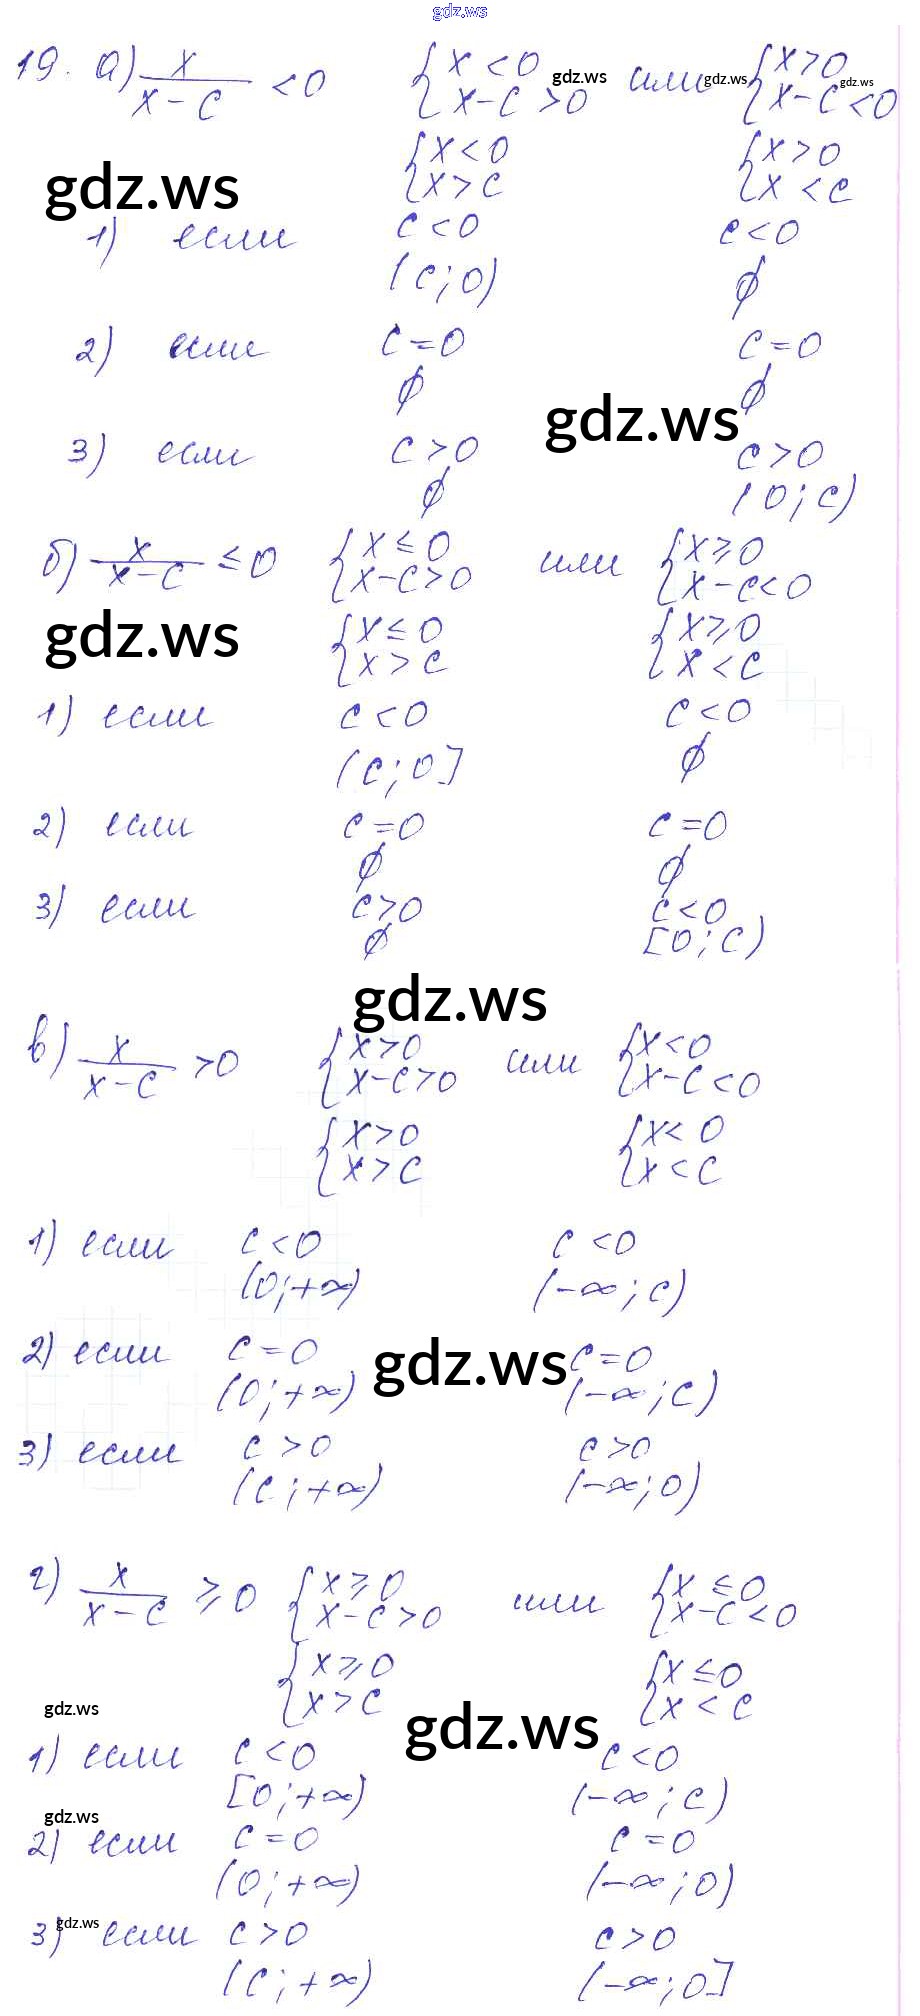 gdz.ws
19. а) x/(x-c) < 0 {x < 0 gdz.ws или gdz.ws {x > 0 gdz.ws
{x-c > 0 {x-c < 0
{x < 0 {x > 0
gdz.ws {x > c {x < c
1) если c < 0 c < 0
(c; 0) ∅
2) если c = 0 c = 0
∅ ∅
gdz.ws
3) если c > 0 c > 0
∅ (0; c)
б) x/(x-c) ≤ 0 {x ≤ 0 или {x ≥ 0
{x-c > 0 {x-c < 0
gdz.ws {x ≤ 0 {x ≥ 0
{x > c {x < c
1) если c < 0 c < 0
(c; 0] ∅
2) если c = 0 c = 0
∅ ∅
3) если c > 0 c < 0
∅ [0; c)
gdz.ws
в) x/(x-c) > 0 {x > 0 или {x < 0
{x-c > 0 {x-c < 0
{x > 0 {x < 0
{x > c {x < c
1) если c < 0 c < 0
(0; +∞) (-∞; c)
2) если c = 0 gdz.ws c = 0
(0; +∞) (-∞; c)
3) если c > 0 c > 0
(c; +∞) (-∞; 0)
г) x/(x-c) ≥ 0 {x ≥ 0 или {x ≤ 0
{x-c > 0 {x-c < 0
{x ≥ 0 {x ≤ 0
gdz.ws {x > c gdz.ws {x < c
1) если c < 0 c < 0
[0; +∞) (-∞; c)
gdz.ws
2) если c = 0 c = 0
(0; +∞) (-∞; 0)
gdz.ws
3) если c > 0 c > 0
(c; +∞) (-∞; 0]